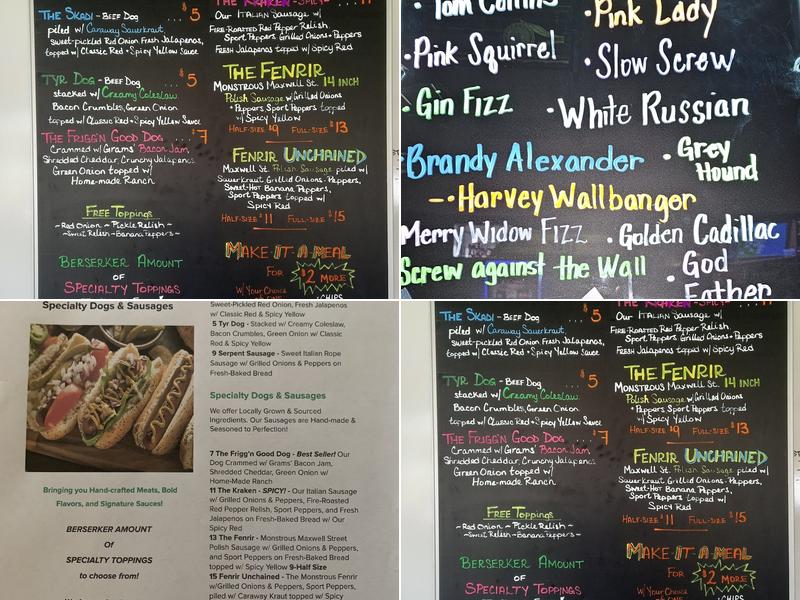 THE SKADI - BEEF DOG ... $5
piled w/ Caraway Sauerkraut,
sweet-pickled Red Onion Fresh Jalapenos,
topped w/ Classic Red + Spicy Yellow Sauce
TYR DOG - BEEF DOG ... $5
stacked w/ Creamy Coleslaw
Bacon Crumbles, Green Onion
topped w/ Classic Red + Spicy Yellow Sauce
THE FRIGG'N GOOD DOG ... $7
Crammed w/ Grams' Bacon Jam
Shredded Cheddar Crunchy Jalapenos
Green Onion topped w/
Home-made Ranch
FREE TOPPINGS
~Red Onion ~ Pickle Relish~
~Sweet Relish ~Banana Peppers~
BERSERKER AMOUNT
OF
SPECIALTY TOPPINGS
THE KRAKEN - SPICY -
Our Italian Sausage w/
Fire-Roasted Red Pepper Relish,
Sport Peppers Grilled Onions + Peppers
Fresh Jalapenos topped w/ Spicy Red
THE FENRIR
MONSTROUS Maxwell St. 14 INCH
Polish Sausage w/ Grilled Onions
+ Peppers Sport Peppers topped
w/ Spicy Yellow
HALF-SIZE $9 FULL-SIZE $13
FENRIR UNCHAINED
Maxwell St Polish Sausage piled w/
Sauerkraut Grilled Onions + Peppers,
Sweet-Hot Banana Peppers,
Sport Peppers topped w/
Spicy Red
HALF-SIZE $11 FULL-SIZE $15
MAKE-IT-A-MEAL
FOR $2 MORE
W/ Your Choice
CHIPS
Tom Collins
· Pink Lady
· Pink Squirrel
· Slow Screw
· Gin Fizz
· White Russian
Brandy Alexander
· Grey
Hound
-· Harvey Wallbanger
Merry Widow FIZZ
· Golden Cadillac
Screw against the Wall
· God
Father
Specialty Dogs & Sausages
Bringing you Hand-crafted Meats, Bold
Flavors, and Signature Sauces!
BERSERKER AMOUNT
Of
SPECIALTY TOPPINGS
to choose from!
Sweet-Pickled Red Onion, Fresh Jalapenos
w/ Classic Red & Spicy Yellow
5 Tyr Dog - Stacked w/ Creamy Coleslaw,
Bacon Crumbles, Green Onion w/ Classic
Red & Spicy Yellow
9 Serpent Sausage - Sweet Italian Rope
Sausage w/ Grilled Onions & Peppers on
Fresh-Baked Bread
Specialty Dogs & Sausages
We offer Locally Grown & Sourced
Ingredients. Our Sausages are Hand-made &
Seasoned to Perfection!
7 The Frigg'n Good Dog - Best Seller! Our
Dog Crammed w/ Grams' Bacon Jam,
Shredded Cheddar, Green Onion w/
Home-Made Ranch
11 The Kraken - SPICY! - Our Italian Sausage
w/ Grilled Onions & Peppers, Fire-Roasted
Red Pepper Relish, Sport Peppers, and Fresh
Jalapenos on Fresh-Baked Bread w/ Our
Spicy Red
13 The Fenrir - Monstrous Maxwell Street
Polish Sausage w/ Grilled Onions & Peppers,
and Sport Peppers on Fresh-Baked Bread
topped w/ Spicy Yellow 9-Half Size
15 Fenrir Unchained - The Monstrous Fenrir
w/Grilled Onions & Peppers, Sport Peppers,
piled w/ Caraway Kraut topped w/ Spicy
THE SKADI - BEEF DOG ... $5
piled w/ Caraway Sauerkraut,
sweet-pickled Red Onion Fresh Jalapenos,
topped w/ Classic Red + Spicy Yellow Sauce
TYR DOG - BEEF DOG ... $5
stacked w/ Creamy Coleslaw
Bacon Crumbles, Green Onion
topped w/ Classic Red + Spicy Yellow Sauce
THE FRIGG'N GOOD DOG ... $7
Crammed w/ Grams' Bacon Jam
Shredded Cheddar Crunchy Jalapenos
Green Onion topped w/
Home-made Ranch
FREE TOPPINGS
~Red Onion ~ Pickle Relish~
~Sweet Relish ~Banana Peppers~
BERSERKER AMOUNT
OF
SPECIALTY TOPPINGS
Our Italian Sausage w/
Fire-Roasted Red Pepper Relish,
Sport Peppers Grilled Onions + Peppers
Fresh Jalapenos topped w/ Spicy Red
THE FENRIR
MONSTROUS Maxwell St. 14 INCH
Polish Sausage w/ Grilled Onions
+ Peppers Sport Peppers topped
w/ Spicy Yellow
HALF-SIZE $9 FULL-SIZE $13
FENRIR UNCHAINED
Maxwell St Polish Sausage piled w/
Sauerkraut Grilled Onions + Peppers,
Sweet-Hot Banana Peppers,
Sport Peppers topped w/
Spicy Red
HALF-SIZE $11 FULL-SIZE $15
MAKE-IT-A-MEAL
FOR $2 MORE
W/ Your Choice